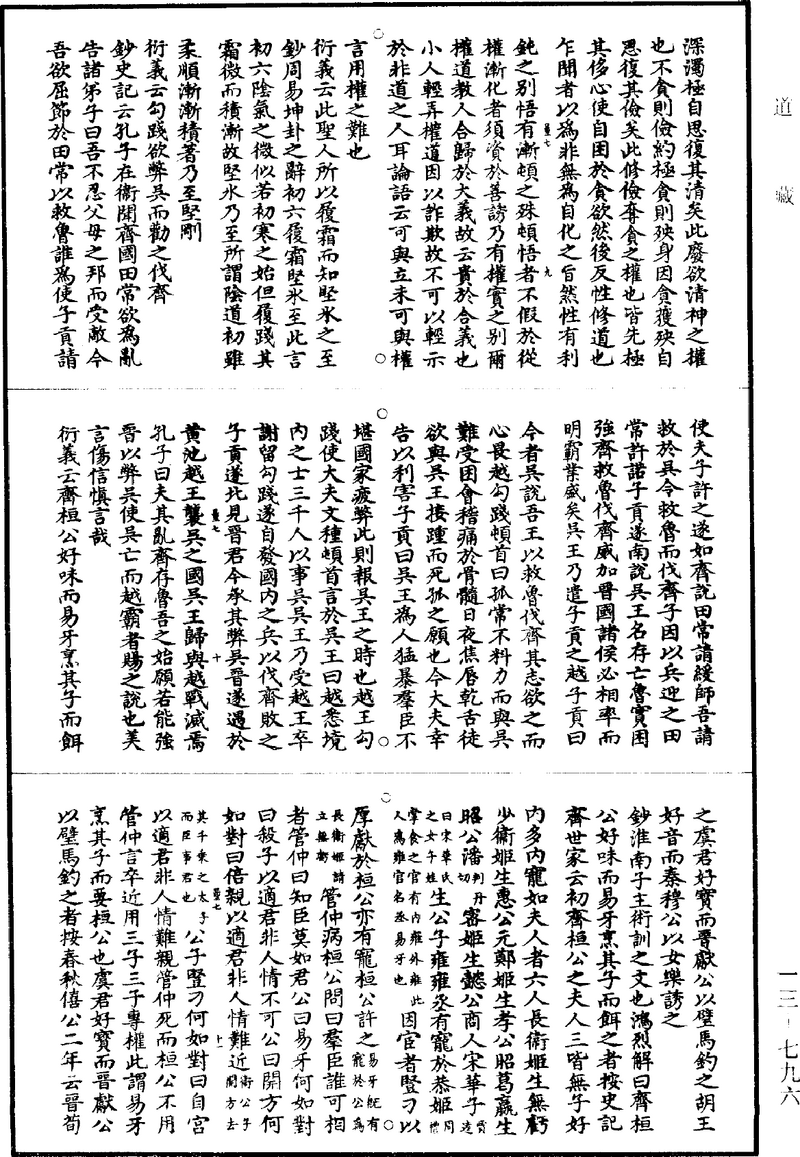 道藏
深濁極自思復其清矣此廢欲清神之權
也不貪則儉約極貪則殃身因貪獲殃自
思復其儉矣此修儉奪貪之權也皆先極
其侈心使自困於貪欲然後反性修道也
乍聞者以爲非無為自化之旨然性有利
鈍之別悟有漸頓之殊頓悟者不假於從
權漸化者須資於善誘乃有權實之別爾
權道教人合歸於大義故云貴於合義也
小人輕弄權道因以詐欺故不可以輕示
於非道之人耳論語云可與立未可與權
言用權之難也
衍義云此聖人所以履霜而知堅氷之至
鈔周易坤卦之辭初六履霜堅氷至此言
初六陰氣之微似若初寒之始但履踐其
霜微而積漸故堅氷乃至所謂陰道初雖
柔順漸漸積著乃至堅剛
衍義云勾踐欲弊吳而勸之伐齊
鈔史記云孔子在衛聞齊國田常欲為亂
告諸弟子曰吾不忍父母之邦而受敵今
吾欲屈節於田常以救魯誰爲使子貢請
使夫子許之遂如齊說田常請緩師吾請
救於吳令救魯而伐齊子因以兵迎之田
常許諾子貢遂南說吳王名存亡魯實困
強齊救魯伐齊威加晉國諸侯必相率而
朋霸業盛矣吳王乃遣子貢之越子貢曰
今者吳說吾王以救魯伐齊其志欲之而
心畏越勾踐頓首曰孤常不料力而與吳
難受困會稽痛於骨髓日夜焦唇乾舌徒
欲與吳王接踵而死孤之願也今大夫幸
告以利害子貢曰吳王爲人猛暴羣臣不
堪國家疲弊此則報吳王之時也越王勾
踐使大夫文種頓首言於吳王曰越悉境
內之士三千人以事吳吳王乃受越王卒
謝留勾踐遂自發國內之兵以伐齊敗之
子貢遂北見晉君令承其弊吳晉遂遇於
黄池越王襲吳之國吳王歸與越戰滅焉
孔子曰夫其亂齊存魯吾之始願若能強
晉以弊吳使吳亡而越霸者賜之說也美
言傷信愼言哉
衍義云齊桓公好味而易牙烹其子而餌
之虞君好寶而晉獻公以璧馬釣之胡王
好音而秦穆公以女樂誘之
鈔淮南子主術訓之文也鴻烈解曰齊桓
公好味而易牙烹其子而餌之者按史記
齊世家云初齊桓公之夫人三皆無子好
內多內寵如夫人者六人長衛姬生無虧
少衛姬生惠公元鄭姬生孝公昭葛嬴生
昭公潘判丹切密姬生懿公商人宋華子
曰宋華氏之女子姓生公子雍雍巫有寵於恭姬
掌食之官有內雍外雍此人爲雍官名巫易牙也因宦者豎刁以
厚獻於桓公亦有寵桓公許之易牙既有寵於公爲
長衛姬請立無虧管仲病桓公問曰羣臣誰可相
者管仲曰知臣莫如君公曰易牙何如對
曰殺子以適君非人情不可公曰開方何
如對曰倍親以適君非人情難近衛公子開方去
其千乘之太子而臣事君也公子豎刁何如對曰自宮
以適君非人情難親管仲死而桓公不用
管仲言卒近用三子三子專權此謂易牙
烹其子而要桓公也虞君好寶而晉獻公
以璧馬釣之者按春秋僖公二年云晉荀
一三－七九六